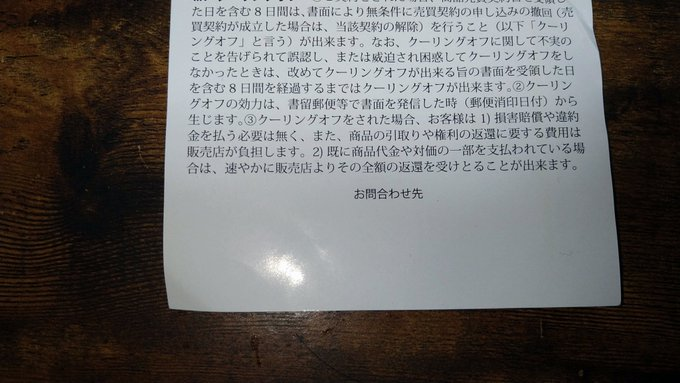 た日を含む 8 日間は、書面により無条件に売買契約の申し込みの撤回（売
買契約が成立した場合は、当該契約の解除）を行うこと（以下「クーリ
ングオフ」と言う）が出来ます。なお、クーリングオフに関して不実の
ことを告げられて誤認し、または威迫され困惑してクーリングオフをし
なかったときは、改めてクーリングオフが出来る旨の書面を受領した日
を含む 8 日間を経過するまではクーリングオフが出来ます。②クーリン
グオフの効力は、書留郵便等で書面を発信した時（郵便消印日付）から
生じます。③クーリングオフをされた場合、お客様は 1) 損害賠償や違約
金を払う必要は無く、また、商品の引取りや権利の返還に要する費用は
販売店が負担します。2) 既に商品代金や対価の一部を支払われている場
合は、速やかに販売店よりその全額の返還を受けとることが出来ます。
お問合わせ先